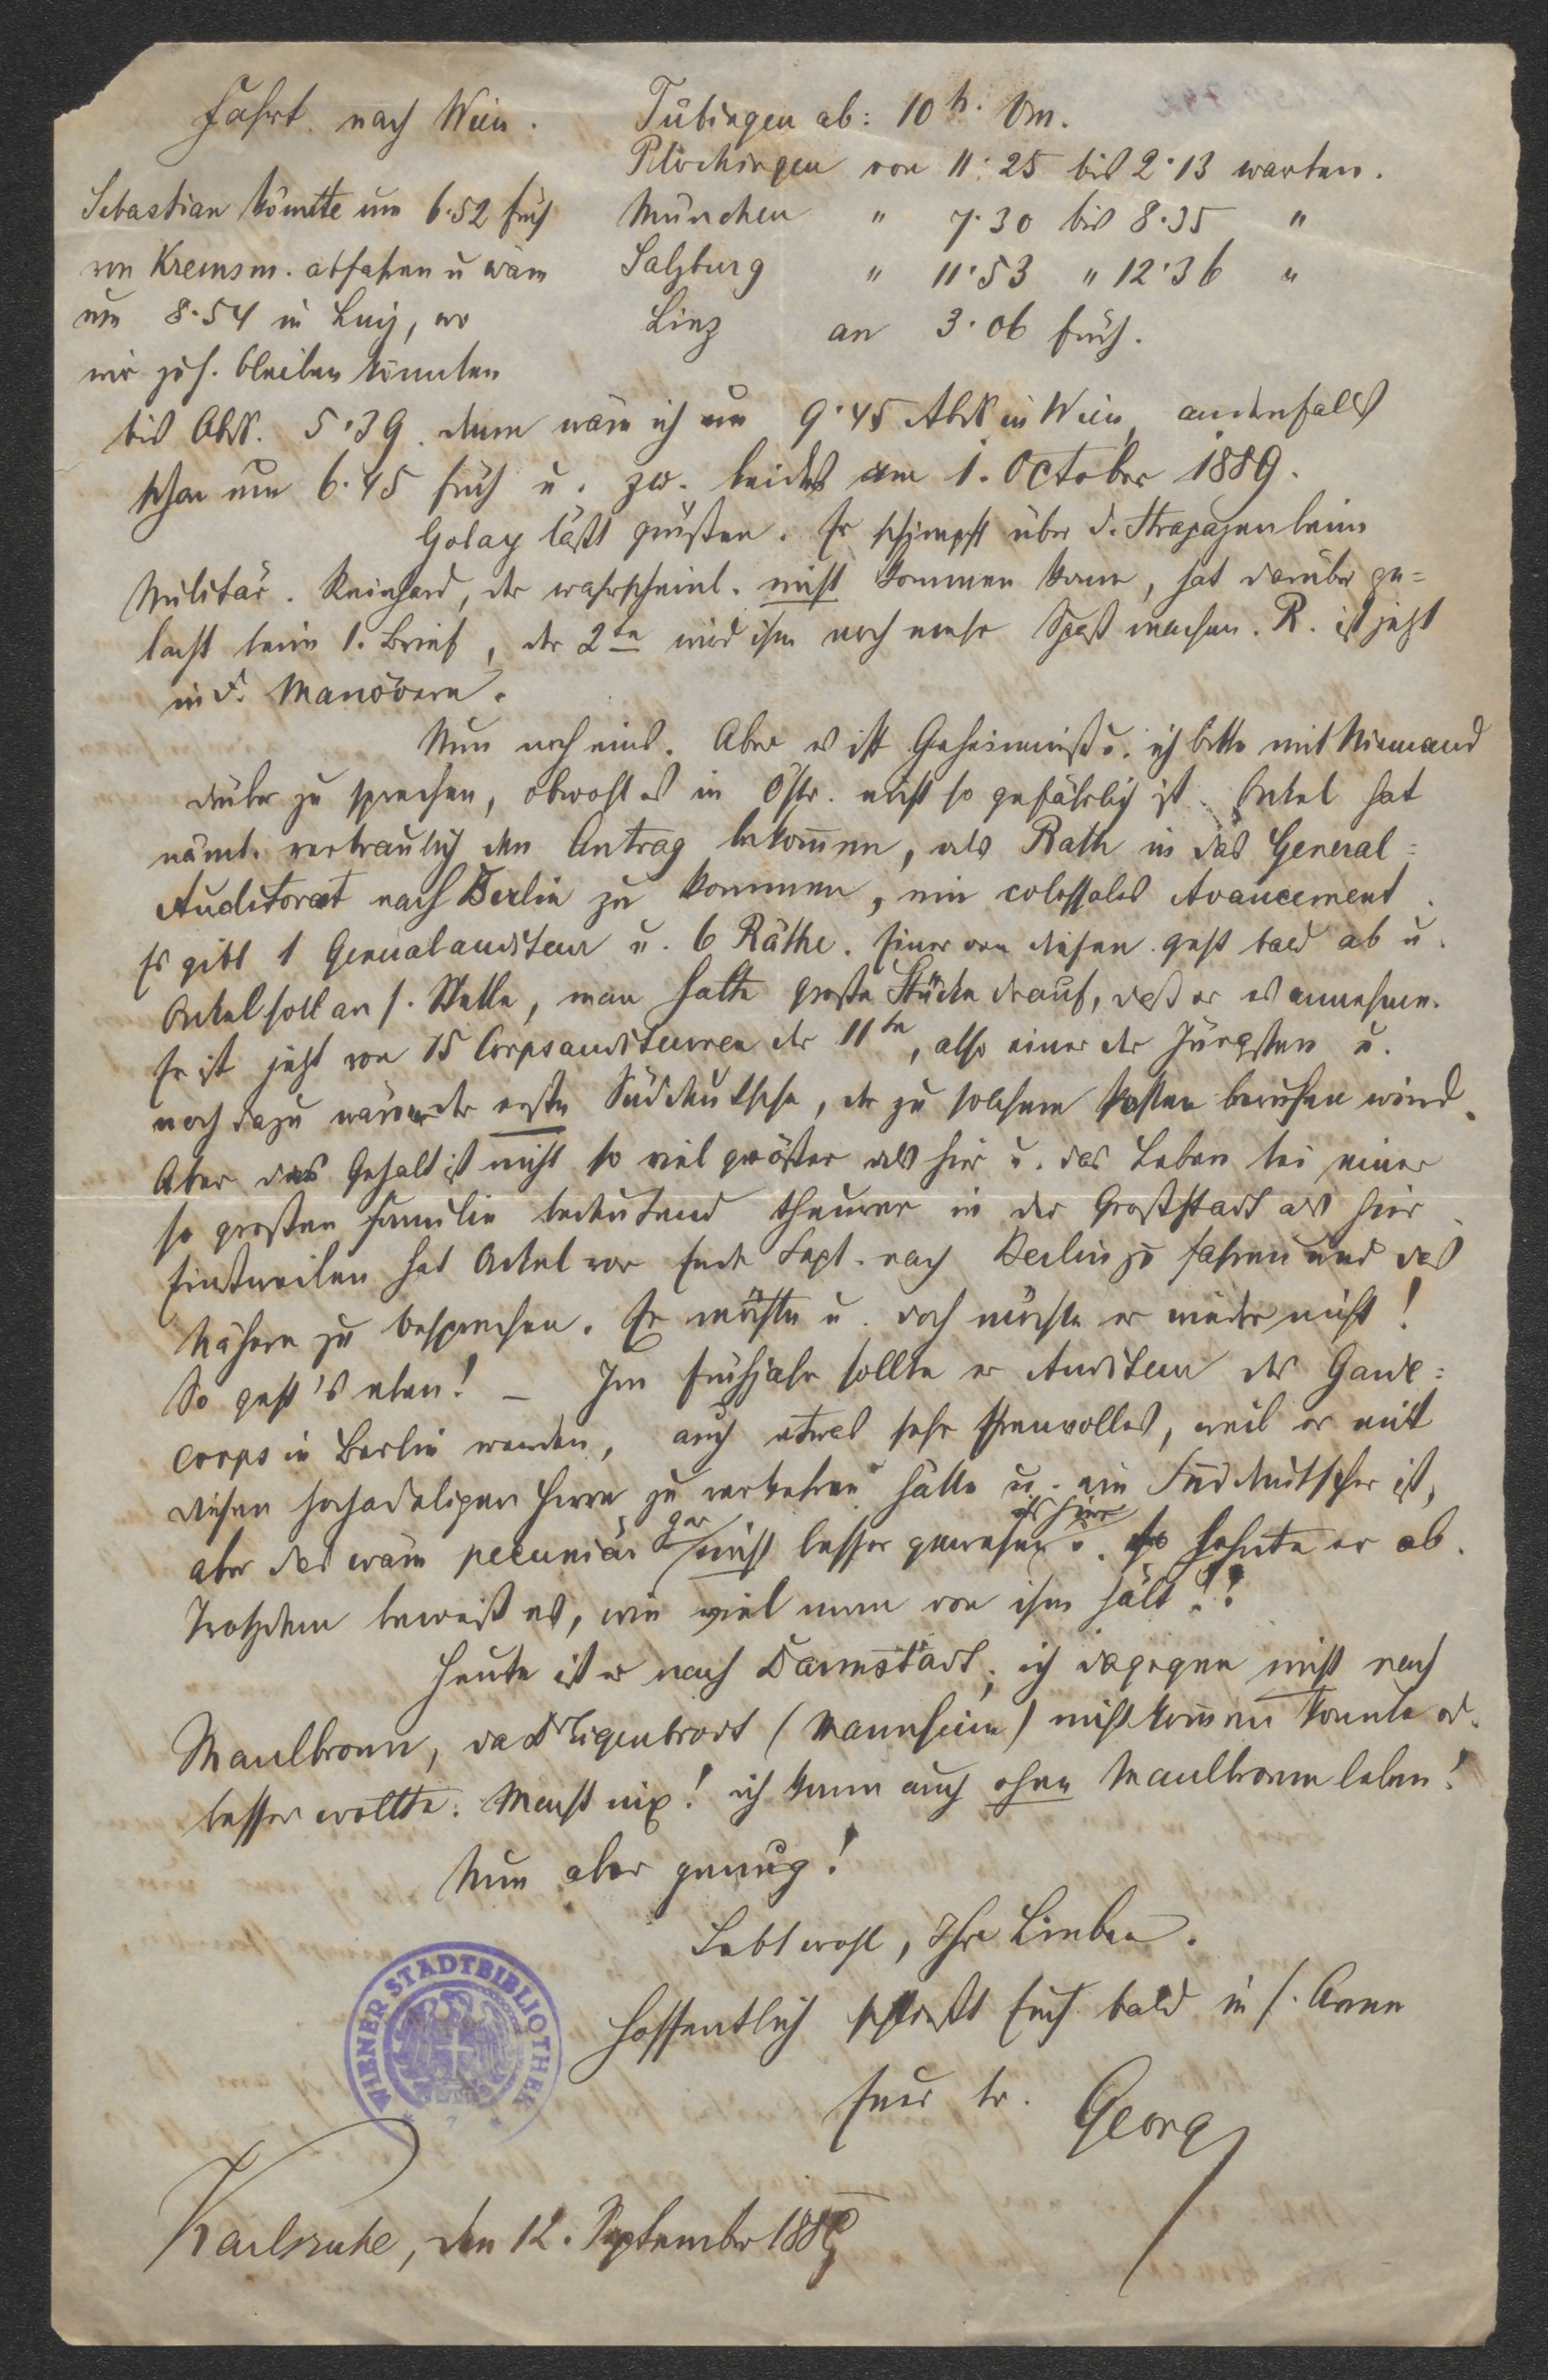 Fahrt nach Wien.
Tübingen ab: 10 h. Vm.
Plochingen von 11·25 bis 2·13 warten.
München " 7·30 bis 8·35 "
Salzburg " 11·53 " 12·36 "
Linz an 3·06 früh.
Sebastian könnte um 6·52 früh
von Kremsm. abfahren u wäre
um 8·54 in Linz, wo
wir zus. bleiben könnten
bis Abds. 5·39. dann wäre ich um 9·45 Abds in Wien, andenfalls
schon um 6·45 früh u. zw. beides am 1. October 1889.
Golay läßt grüßen. Er schimpft über d. Strapazen beim
Militär. Reinhard, der wahrscheinl. nicht kommen kann, hat darüber ge=
lacht beim 1. Brief, der 2te wird ihm noch mehr Spaß machen. R. ist jetzt
in d. Manövern.
Nun noch eins. Aber es ist Geheimniß u. ich bitte mit Niemand
drüber zu sprechen, obwohl es in Östr. nicht so gefährlich ist. Onkel hat
näml. vertraulich den Antrag bekom̄en, als Rath in das General=
Auditorat nach Berlin zu kommen, ein colossales Avancement.
Es gibt 1 Generalauditeur u. 6 Räthe. Einer von diesen geht bald ab u.
Onkel soll an s. Stelle, man halte große Stücke drauf, daß er es annehme.
Er ist jetzt von 15 Corpsauditeuren der 11te, also einer der Jüngsten u.
noch dazu wäre er der erste Süddeutsche, der zu solchem Posten berufen wird.
Aber das Gehalt ist nicht so viel größer als hier u. das Leben bei einer
so großen Familie bedeutend theurer in der Großstadt als hier.
Einstweilen hat Onkel vor Ende Sept. nach Berlin zu fahren und das
Nähere zu besprechen. Er möchte u. doch möchte er wieder nicht!
So geht's eben! – Im Frühjahr sollte er Auditeur des Garde=
corps in Berlin werden, auch etwas sehr Ehrenvolles, weil er mit
diesen hochadeligen Herrn zu verkehren hätte u. ein Süddeutscher ist,
aber das wäre pecuniär gar nicht besser gewesen als hier u. so lehnte er ab.
Trotzdem beweist es, wie viel man von ihm hält!!
Heute ist er nach Darmstadt; ich dagegen nicht nach
Maulbronn, da Dr Eigenbrodt (Mannheim) nicht kom̄en konnte od.
besser wollte. Macht nix! ich kann auch ohne Maulbronn leben!
Nun aber genug!
Lebt wohl, Ihr Lieben.
Hoffentlich schließt Euch bald in s. Arme
Euer tr. Georg
WIENER STADTBIBLIOTHEK
Karlsruhe, den 12. September 1889